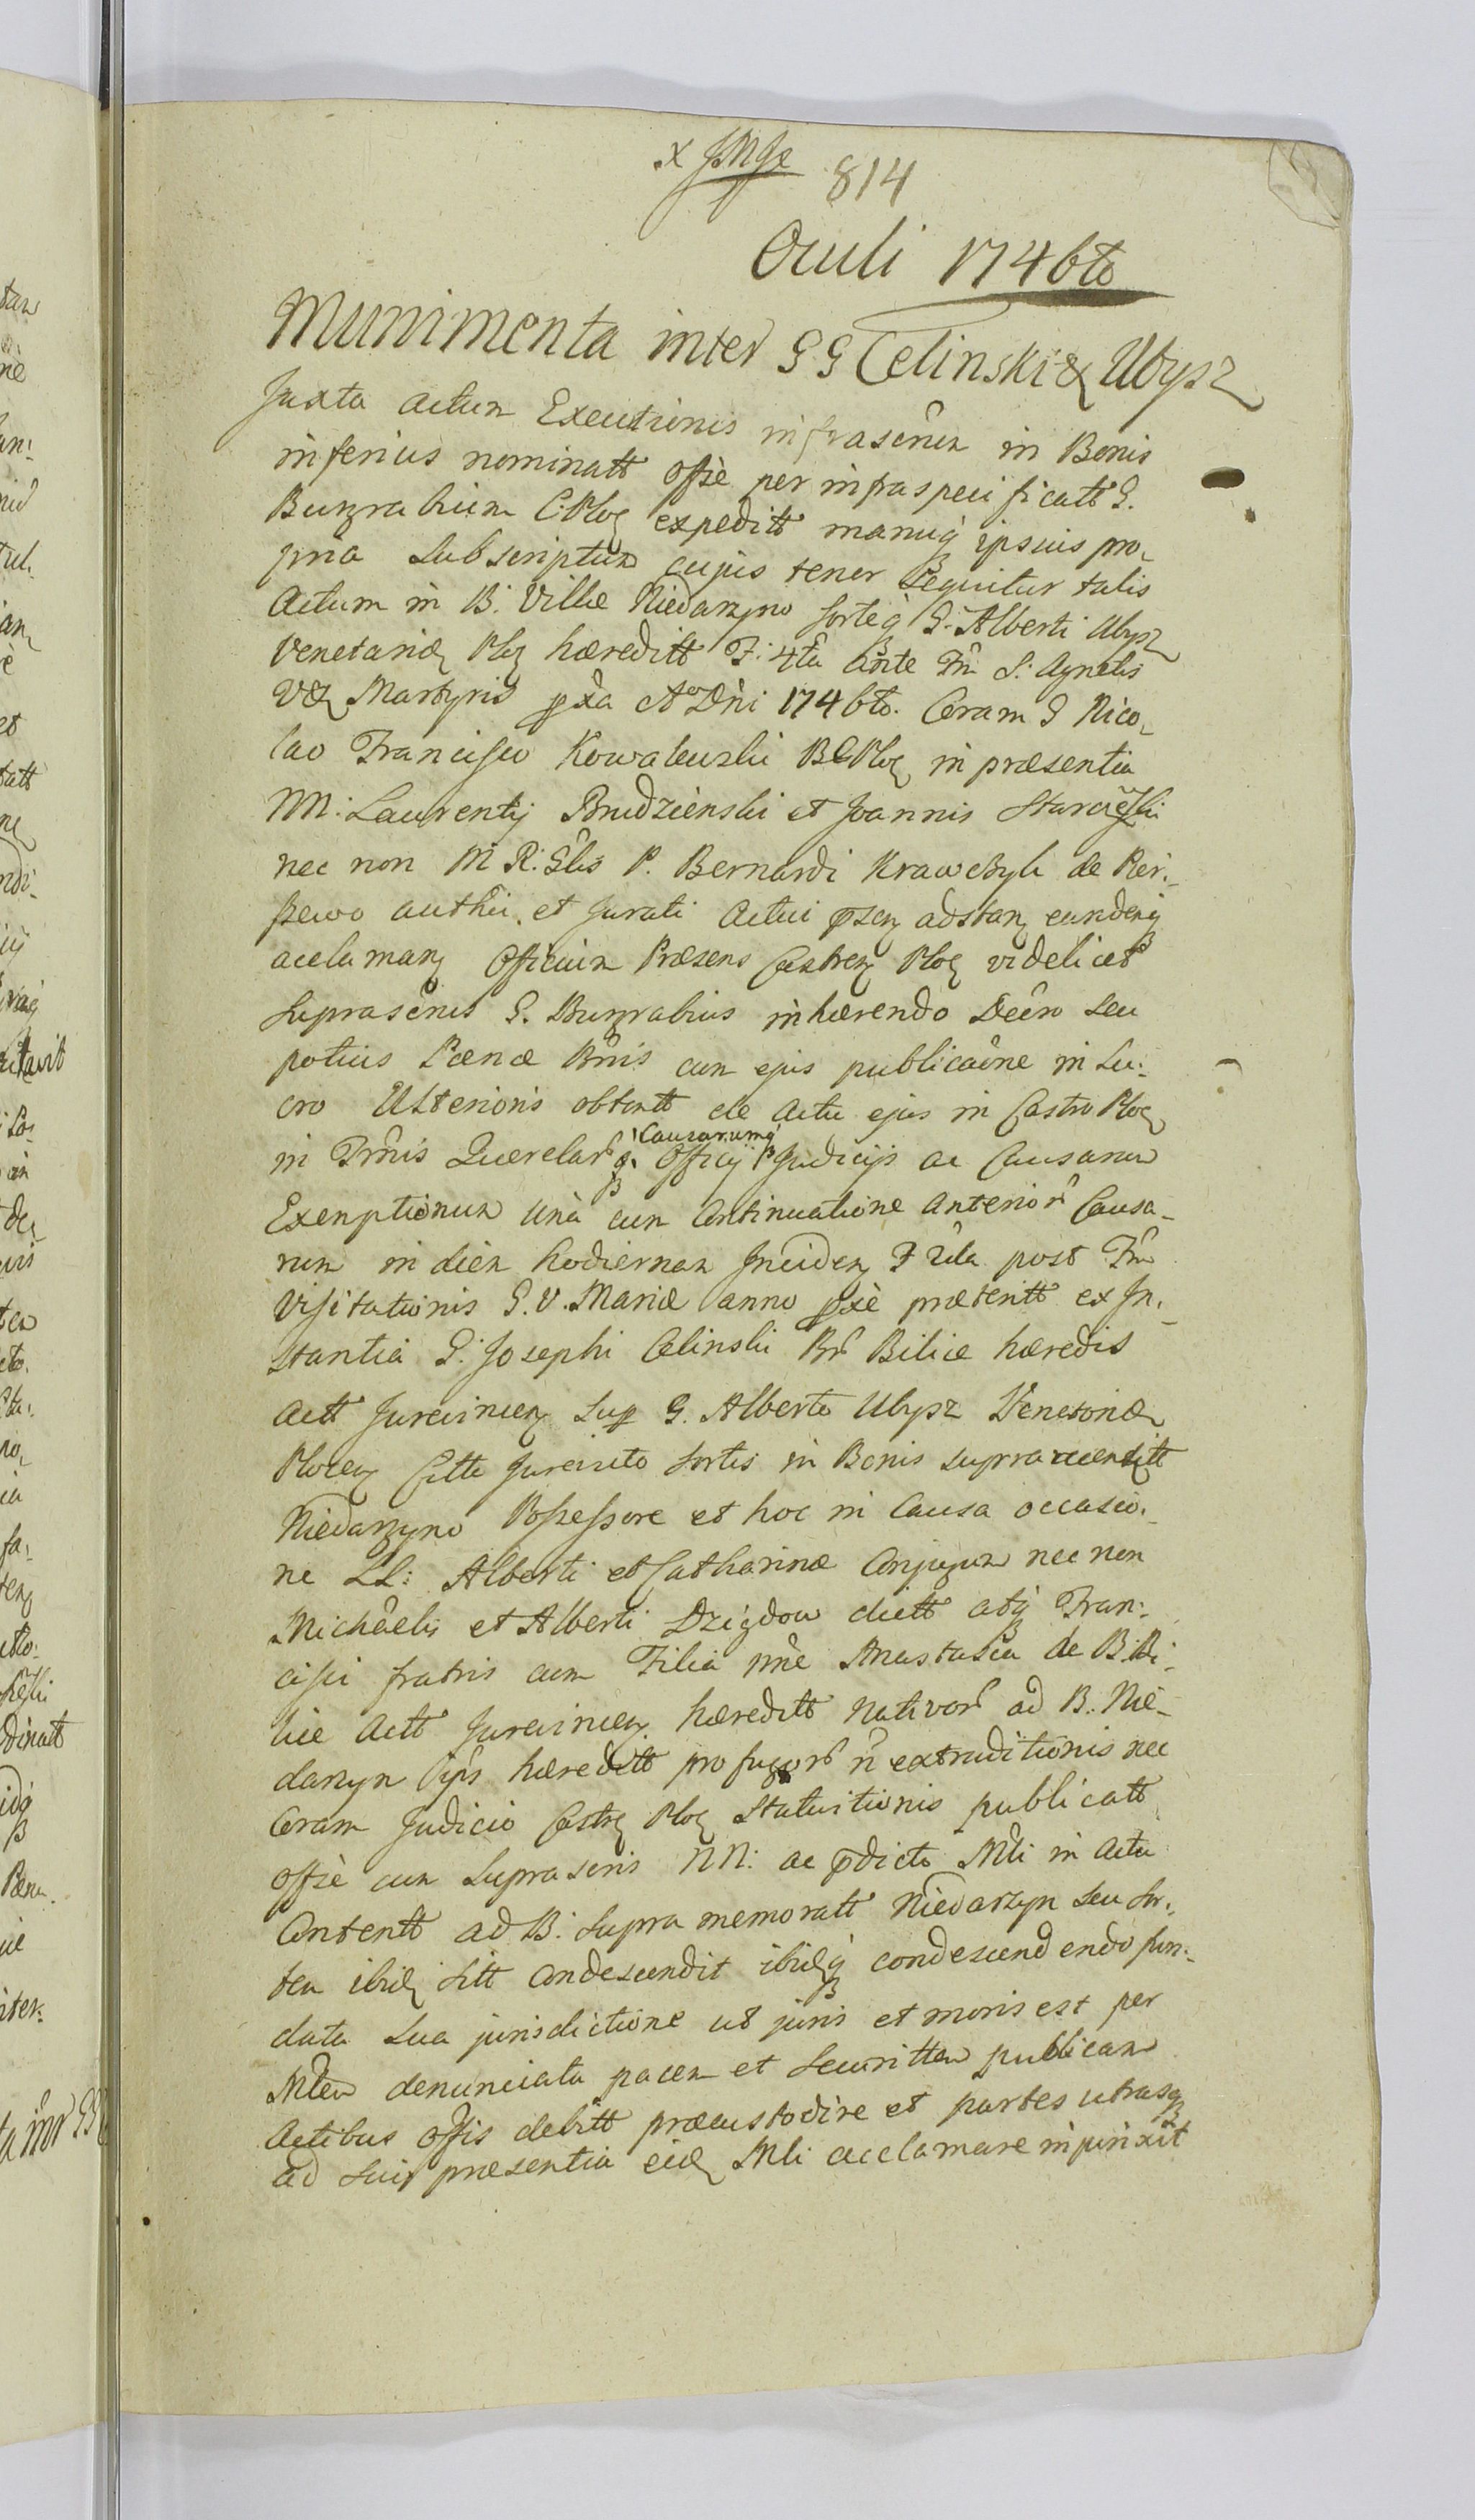 814
Oculi 1746to
Munimenta inter GG Celinski & Ubysz
Juxta actum Executionis infrascrum in Bonis
inferius nominatt offse per infraspecificatt G.
Burgrabium C. Ploc expeditt manuq ipsius pro-
pria Subscriptum cujus tenor Sequitur talis
Actum in B. Villæ Niedarzyno forteq G. Alberti Ubysz
Venatoridæ Ploc hæreditt F. 4ta ante Fm S. Agnetis
V & Martyris pxa Ao Dni 1746to. Coram G Nico-
lao Francisco Kowalewski B C Ploc in præsentia
NN: Laurentij Brudzienski et Joannis
nec non M R. Glis P. Bernardi Krawczyk de
authci et Jurati Actui adstan eundemq
acclaman Officium Præsens Castren Ploc videlicet
Suprascrus G. Burgrabius inhærendo Decro Seu
potius Pœnæ Bnis cum ejus publicaone in Lu-
cro Ulterioris obtentt de Actu ejus in Castro Ploc
in Trmis Querelar q. Officij Causarumq Judicijs ac Causarum
Exemptionum Unà cum Continuatione anterior Causa-
rum in diem hodiernam Inciden F 2da post Fm
Visitationis S. V. Mariæ anno pxè præteritt ex In-
stantia G. Josephi Celinski Br Biliæ hæredis
Actt Jurevincen Sup G. Alberto Ubysz Venatoridæ
Plocen Citto Jurevicto Sortis in Bonis Supra recensitt
Niedarzyno Possessore et hoc in Causa occasio-
ne LL: Alberti et Catharinæ Conjugum nec non
Michaelis et Alberti Dzigdow dictt atq Fran-
cisci fratris cum Filia nne Anastasia de B. Bi-
lice Actt Jurevincen hæreditt Nativor ad B. Nie-
darzyn hæreditt profugor n extraditionis nec
Coram Judicio Castr Ploc Statuitionis publicatt
offse cum Suprascris NN: ac pdicto Mli in Actu
Contentt ad B. Supra memoratt Niedarzyn Seu Sor-
tem ibid Sitt Condescendit ibidq condescendendo fun-
data Sua jurisdictione ut juris et moris est per
Mlem denunciata pacem et Securittem publicam
Actibus Offis debitt præcustodire et partes utrasq
ad Sui præsentia eid Mli acclamare injunxit